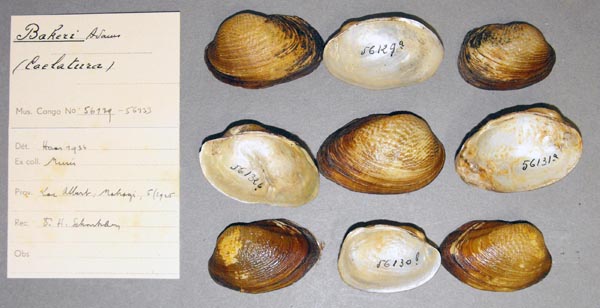 Bakeri Adams
(Caelatura)
Mus. Congo No 56129 - 56133
Dét. Haas 1934
Ex coll.
Prov. Lac Albert, Mahagi, 5/1925
Rec. H. Schouteden
Obs
56129a
56132b
56131a
56130b